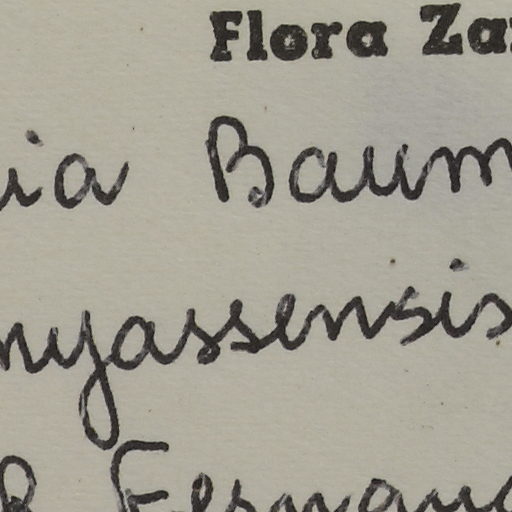 Flora Za
ia Baum
nyassensis
R Fernand